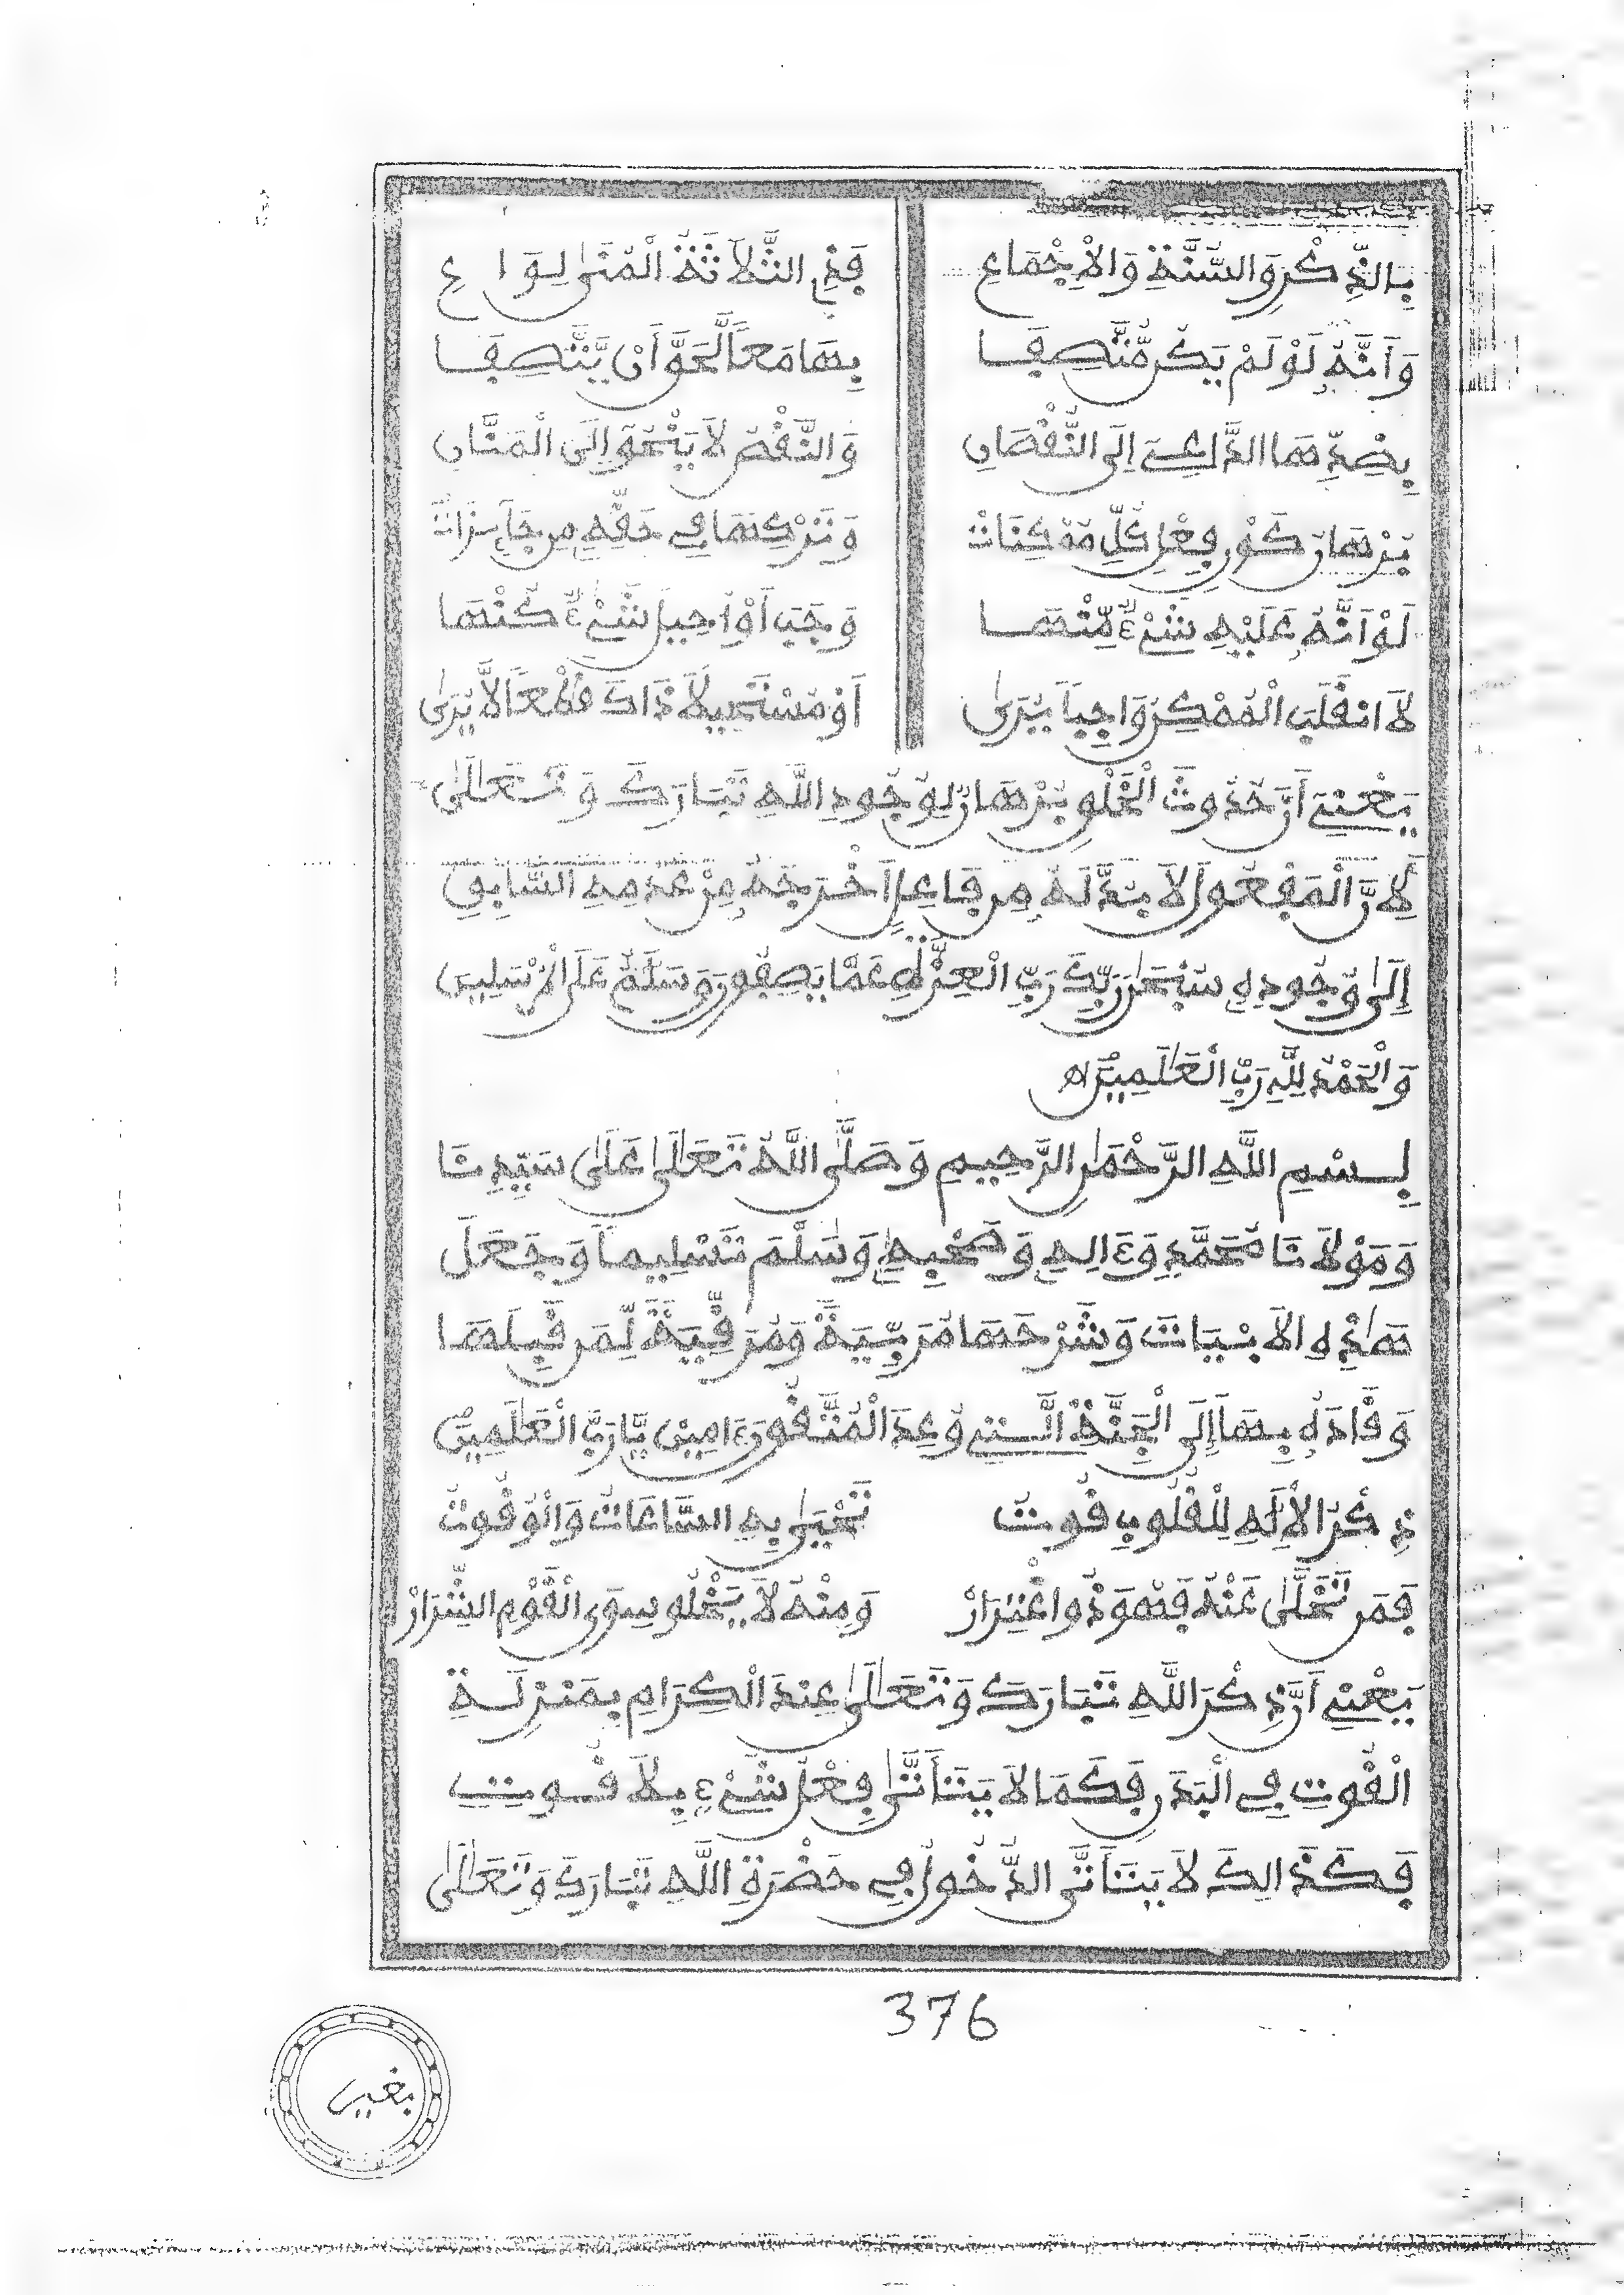 بِالذِّكْرِ وَالسُّنَّةِ وَالْإِجْمَاعِ فَذِي الثَّلَاثَةُ الْمُنَىٰ لِوَاعِ
وَأَنَّهُ لَوْ لَمْ يَكُن مُّتَّصِفَا بِهَا مَعًا لَحَقَّ أَنْ يَّتَّصِفَا
بِضِدِّهَا الدَّاعِي إِلَى النُّقْصَانِ وَالنَّقْصُ لَا يَنْحُو إِلَى الْمَنَّانِ
بُرْهَانُ كَوْنِ فِعْلِ كُلِّ مُمْكِنَاتْ وَتَرْكِهَا فِي حَقِّهِ مِن جَائِزَاتْ
لَوْ أَنَّهُ عَلَيْهِ شَيْءٌ مِّنْهَا وَجَبَ أَوْ أُحِيلَ شَيْءٌ كُنْهَا
لَانْقَلَبَ الْمُمْكِنُ وَاجِبًا يُرَىٰ أَوْ مُسْتَحِيلًا ذَاكَ قَطْعًا لَا يُرَىٰ
يَعْنِي أَنَّ حُدُوثَ الْخَلْقِ بُرْهَانٌ لِوُجُودِ اللَّهِ تَبَارَكَ وَتَعَالَىٰ
لِأَنَّ الْمَفْعُولَ لَا بُدَّ لَهُ مِن فَاعِلٍ أَخْرَجَهُ مِنْ عَدَمِهِ السَّابِقِ
إِلَىٰ وُجُودِهِ سُبْحَٰنَ رَبِّكَ رَبِّ الْعِزَّةِ عَمَّا يَصِفُونَ وَسَلَٰمٌ عَلَى الْمُرْسَلِينَ
وَالْحَمْدُ لِلَّهِ رَبِّ الْعَٰلَمِينَ
بِسْمِ اللَّهِ الرَّحْمَٰنِ الرَّحِيمِ وَصَلَّى اللَّهُ تَعَالَىٰ عَلَىٰ سَيِّدِنَا
وَمَوْلَانَا مُحَمَّدٍ وَءَالِهِ وَصَحْبِهِ وَسَلَّمَ تَسْلِيمًا وَجَعَلَ
هَٰذِهِ الْأَبْيَاتَ وَشَرْحَهَا مُرَبِّيَةً وَمُرَقِّيَةً لِّمَن قَبِلَهَا
وَقَادَهُ بِهَا إِلَى الْجَنَّةِ الَّتِي وُعِدَ الْمُتَّقُونَ ءَامِينَ يَا رَبَّ الْعَٰلَمِينَ
ذِكْرُ الْإِلَٰهِ لِلْقُلُوبِ قُوتُ تَحْيَىٰ بِهِ السَّاعَاتُ وَالْوُقُوتُ
فَمَن تَخَلَّىٰ عَنْهُ فَهْوَ ذُو اغْتِرَارْ وَمِنْهُ لَا يَخْلُو سِوَى الْقَوْمِ الشِّرَارْ
يَعْنِي أَنَّ ذِكْرَ اللَّهِ تَبَارَكَ وَتَعَالَىٰ عِندَ الْكِرَامِ بِمَنزِلَةِ
الْقُوتِ فِي الْبَدَنِ فَكَمَا لَا يَتَأَتَّىٰ فِعْلُ شَيْءٍ بِلَا قُوتٍ
فَكَذَالِكَ لَا يَتَأَتَّى الدُّخُولُ فِي حَضْرَةِ اللَّهِ تَبَارَكَ وَتَعَالَىٰ
376